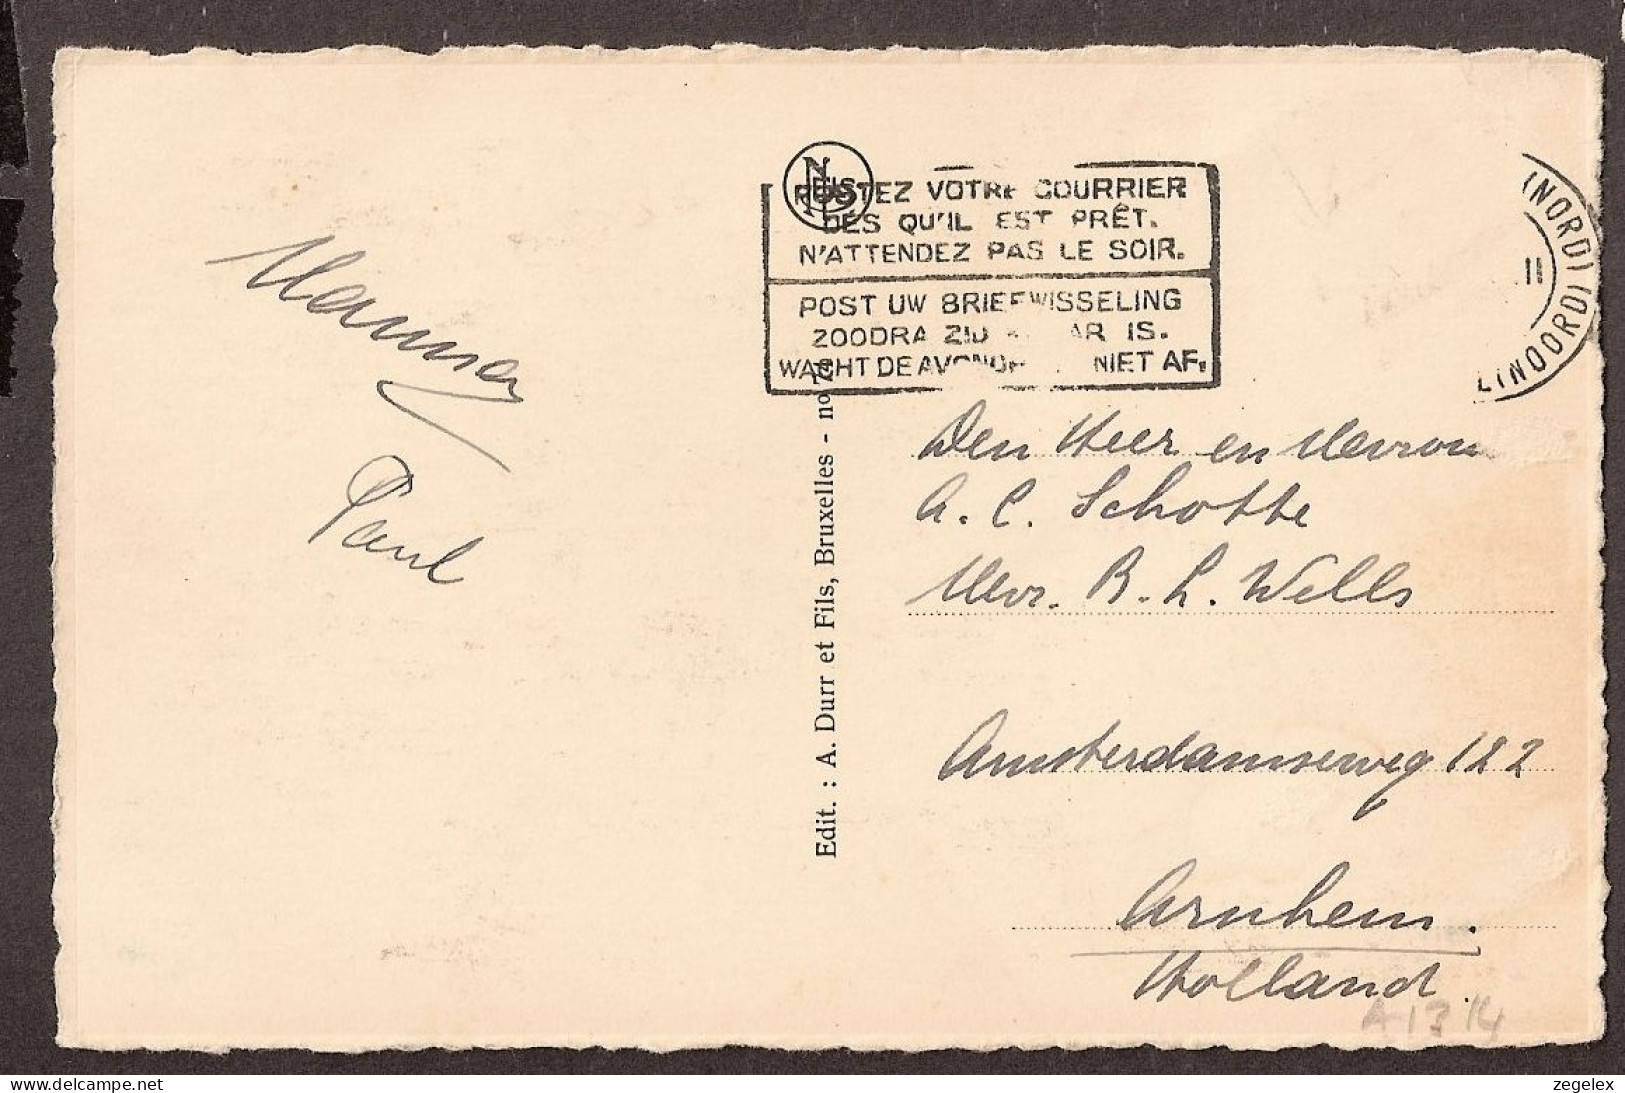 Paul
POSTEZ VOTRE COURRIER
DÈS QU'IL EST PRÊT.
N'ATTENDEZ PAS LE SOIR.
POST UW BRIEFWISSELING
ZOODRA ZIJ AR IS.
WACHT DE AVOND NIET AF.
(NORD)
II
(NOORD)
Edit. : A. Durr et Fils, Bruxelles - no
Den Heer en Mevrouw
A. C. Schotte
Mevr. B. L. Wells
Amsterdamseweg 122
Arnhem.
Holland.
A1314
delcampe.net
zegelex